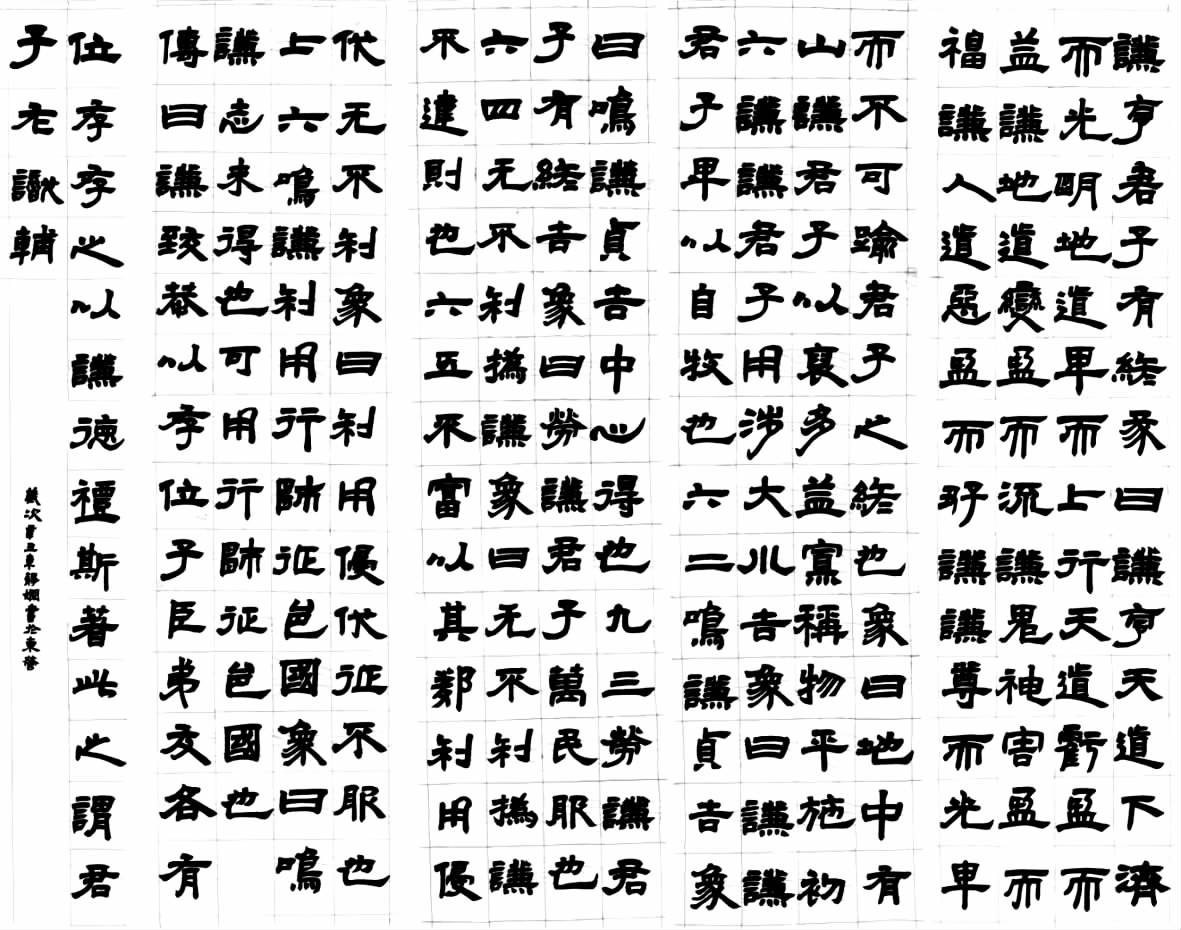 謙亨君子有終彖曰謙亨天道下濟
而光明地道卑而上行天道虧盈而
益謙地道變盈而流謙鬼神害盈而
福謙人道惡盈而好謙謙尊而光卑
而不可踰君子之終也象曰地中有
山謙君子以裒多益寡稱物平施初
六謙謙君子用涉大川吉象曰謙謙
君子卑以自牧也六二鳴謙貞吉象
曰鳴謙貞吉中心得也九三勞謙君
子有終吉象曰勞謙君子萬民服也
六四无不利撝謙象曰无不利撝謙
不違則也六五不富以其鄰利用侵
伐无不利象曰利用侵伐征不服也
上六鳴謙利用行師征邑國象曰鳴
謙志未得也可用行師征邑國也
傳曰謙致恭以存位子臣弟友各有
位存存之以謙德禮斯著此之謂君
子
歲次辛丑年嫻書於東營